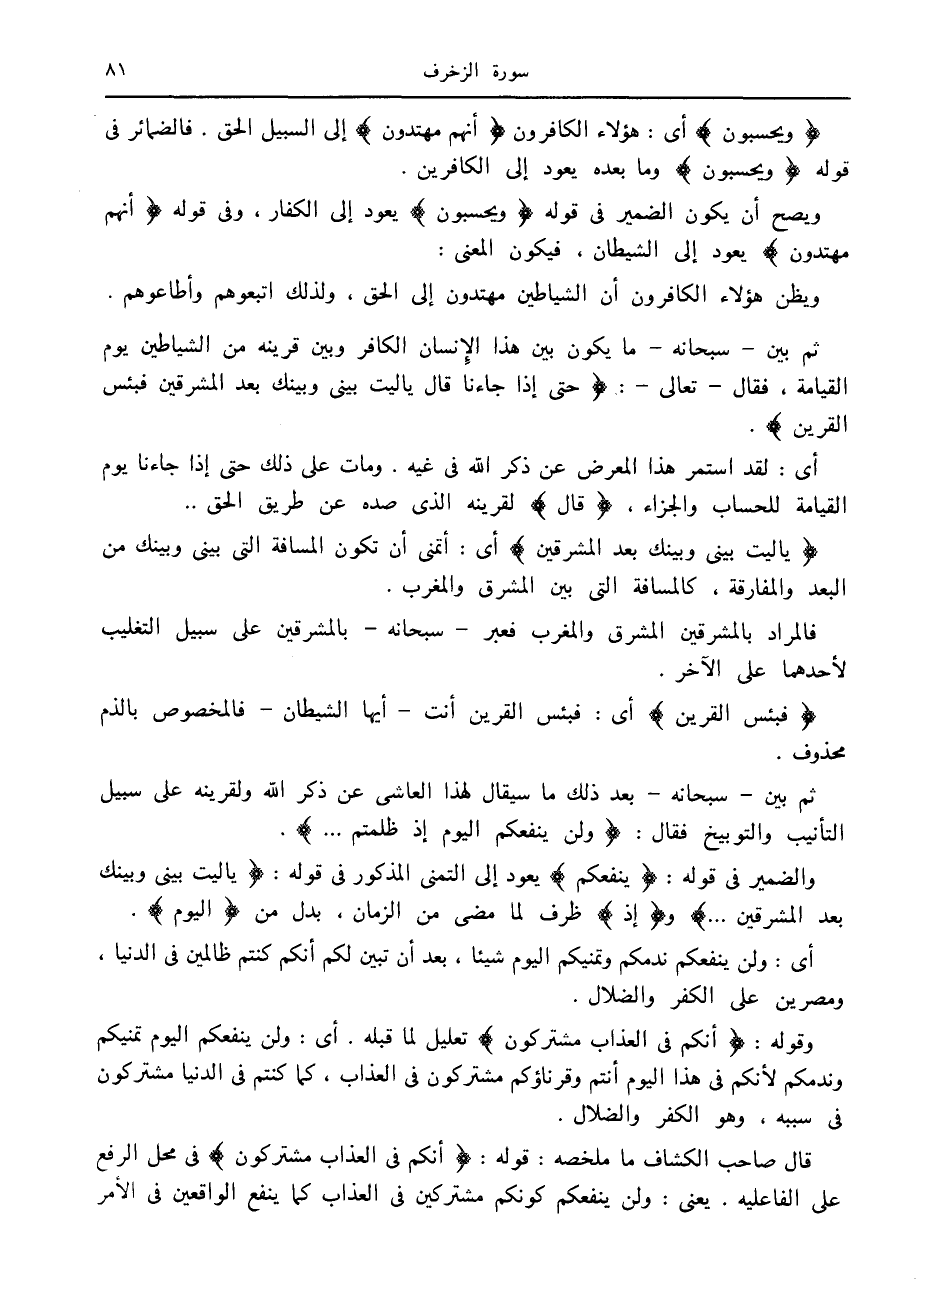 سورة الزخرف ٨١
﴿ ويحسبون ﴾ أى : هؤلاء الكافرون ﴿ أنهم مهتدون ﴾ إلى السبيل الحق . فالضمائر فى
قوله ﴿ ويحسبون ﴾ وما بعده يعود إلى الكافرين .
ويصح أن يكون الضمير فى قوله ﴿ ويحسبون ﴾ يعود إلى الكفار ، وفى قوله ﴿ أنهم
مهتدون ﴾ يعود إلى الشيطان ، فيكون المعنى :
ويظن هؤلاء الكافرون أن الشياطين مهتدون إلى الحق ، ولذلك اتبعوهم وأطاعوهم .
ثم بين – سبحانه – ما يكون بين هذا الإِنسان الكافر وبين قرينه من الشياطين يوم
القيامة ، فقال – تعالى – : ﴿ حتى إذا جاءنا قال ياليت بينى وبينك بعد المشرقين فبئس
القرين ﴾ .
أى : لقد استمر هذا المعرض عن ذكر الله فى غيه . ومات على ذلك حتى إذا جاءنا يوم
القيامة للحساب والجزاء ، ﴿ قال ﴾ لقرينه الذى صده عن طريق الحق ..
﴿ ياليت بينى وبينك بعد المشرقين ﴾ أى : أتمنى أن تكون المسافة التى بينى وبينك من
البعد والمفارقة ، كالمسافة التى بين المشرق والمغرب .
فالمراد بالمشرقين المشرق والمغرب فعبر – سبحانه – بالمشرقين على سبيل التغليب
لأحدهما على الآخر .
﴿ فبئس القرين ﴾ أى : فبئس القرين أنت – أيها الشيطان – فالمخصوص بالذم
محذوف .
ثم بين – سبحانه – بعد ذلك ما سيقال لهذا العاشى عن ذكر الله ولقرينه على سبيل
التأنيب والتوبيخ فقال : ﴿ ولن ينفعكم اليوم إذ ظلمتم ... ﴾ .
والضمير فى قوله : ﴿ ينفعكم ﴾ يعود إلى التمنى المذكور فى قوله : ﴿ ياليت بينى وبينك
بعد المشرقين ...﴾ و﴿ إذ ﴾ ظرف لما مضى من الزمان ، بدل من ﴿ اليوم ﴾ .
أى : ولن ينفعكم ندمكم وتمنيكم اليوم شيئا ، بعد أن تبين لكم أنكم كنتم ظالمين فى الدنيا ،
ومصرين على الكفر والضلال .
وقوله : ﴿ أنكم فى العذاب مشتركون ﴾ تعليل لما قبله . أى : ولن ينفعكم اليوم تمنيكم
وندمكم لأنكم فى هذا اليوم أنتم وقرناؤكم مشتركون فى العذاب ، كما كنتم فى الدنيا مشتركون
فى سببه ، وهو الكفر والضلال .
قال صاحب الكشاف ما ملخصه : قوله : ﴿ أنكم فى العذاب مشتركون ﴾ فى محل الرفع
على الفاعليه . يعنى : ولن ينفعكم كونكم مشتركين فى العذاب كما ينفع الواقعين فى الأمر